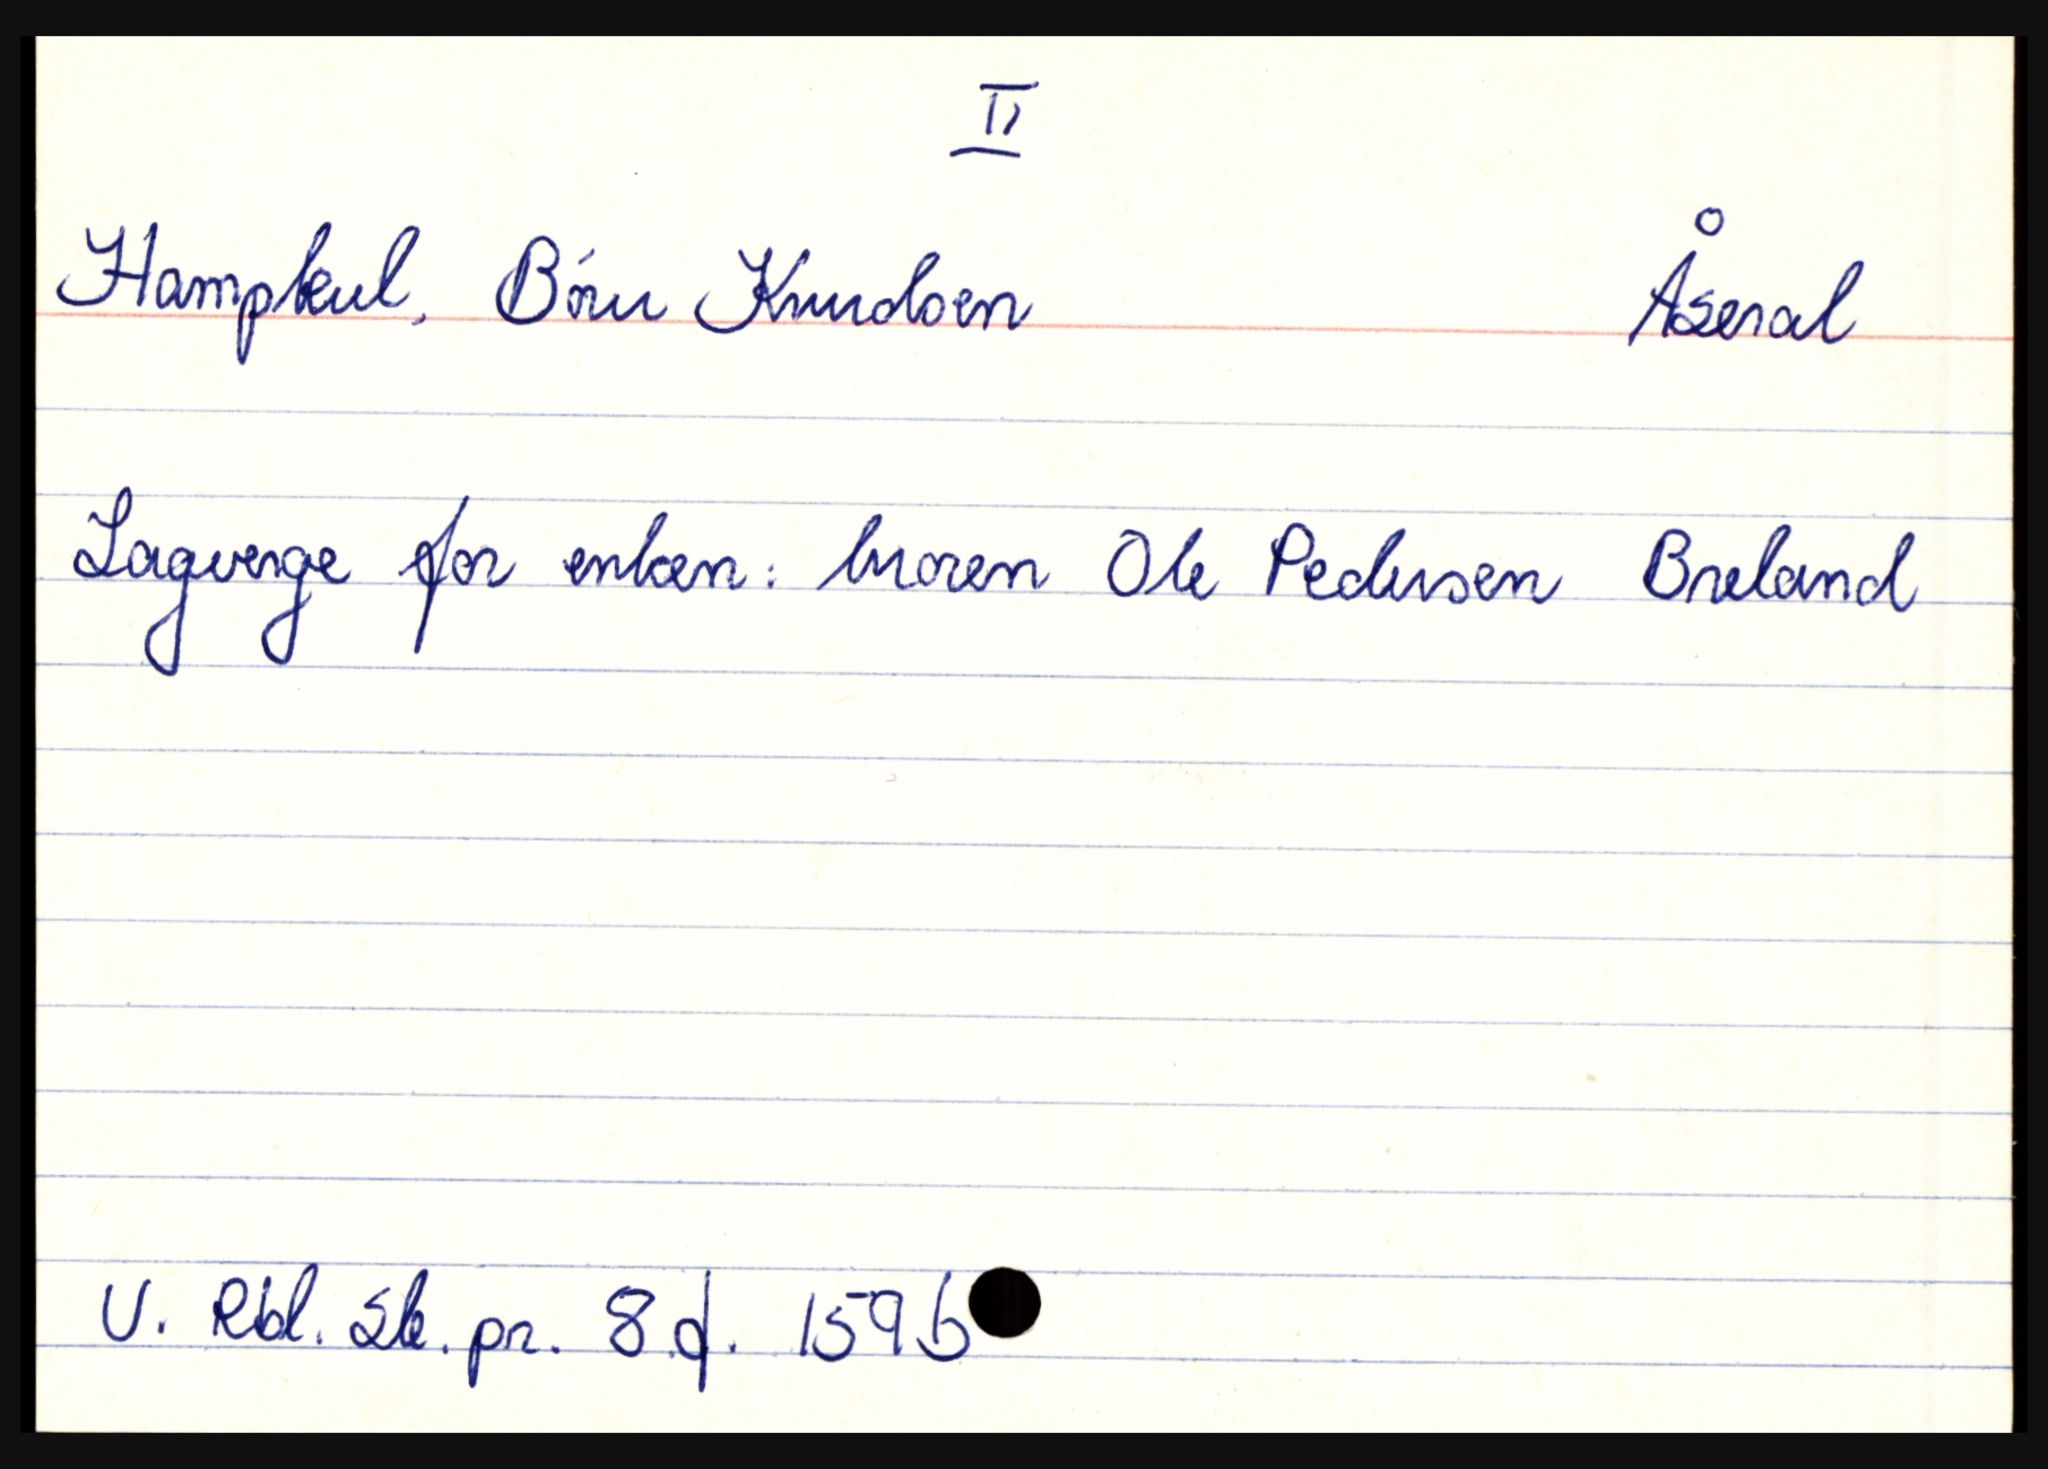 II
Hampkul, Børu Knudsen Åseral
Lagverge for enken: broren Ole Pedersen Breland
V. Rbl. Sk. pr. 8 f. 159b